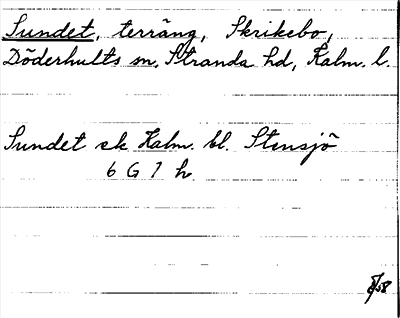 Sundet, terräng, Skrikebo,
Döderhults sn, Stranda hd, Kalm. l.
Sundet ek Kalm. bl. Stensjö
6 G 7 h